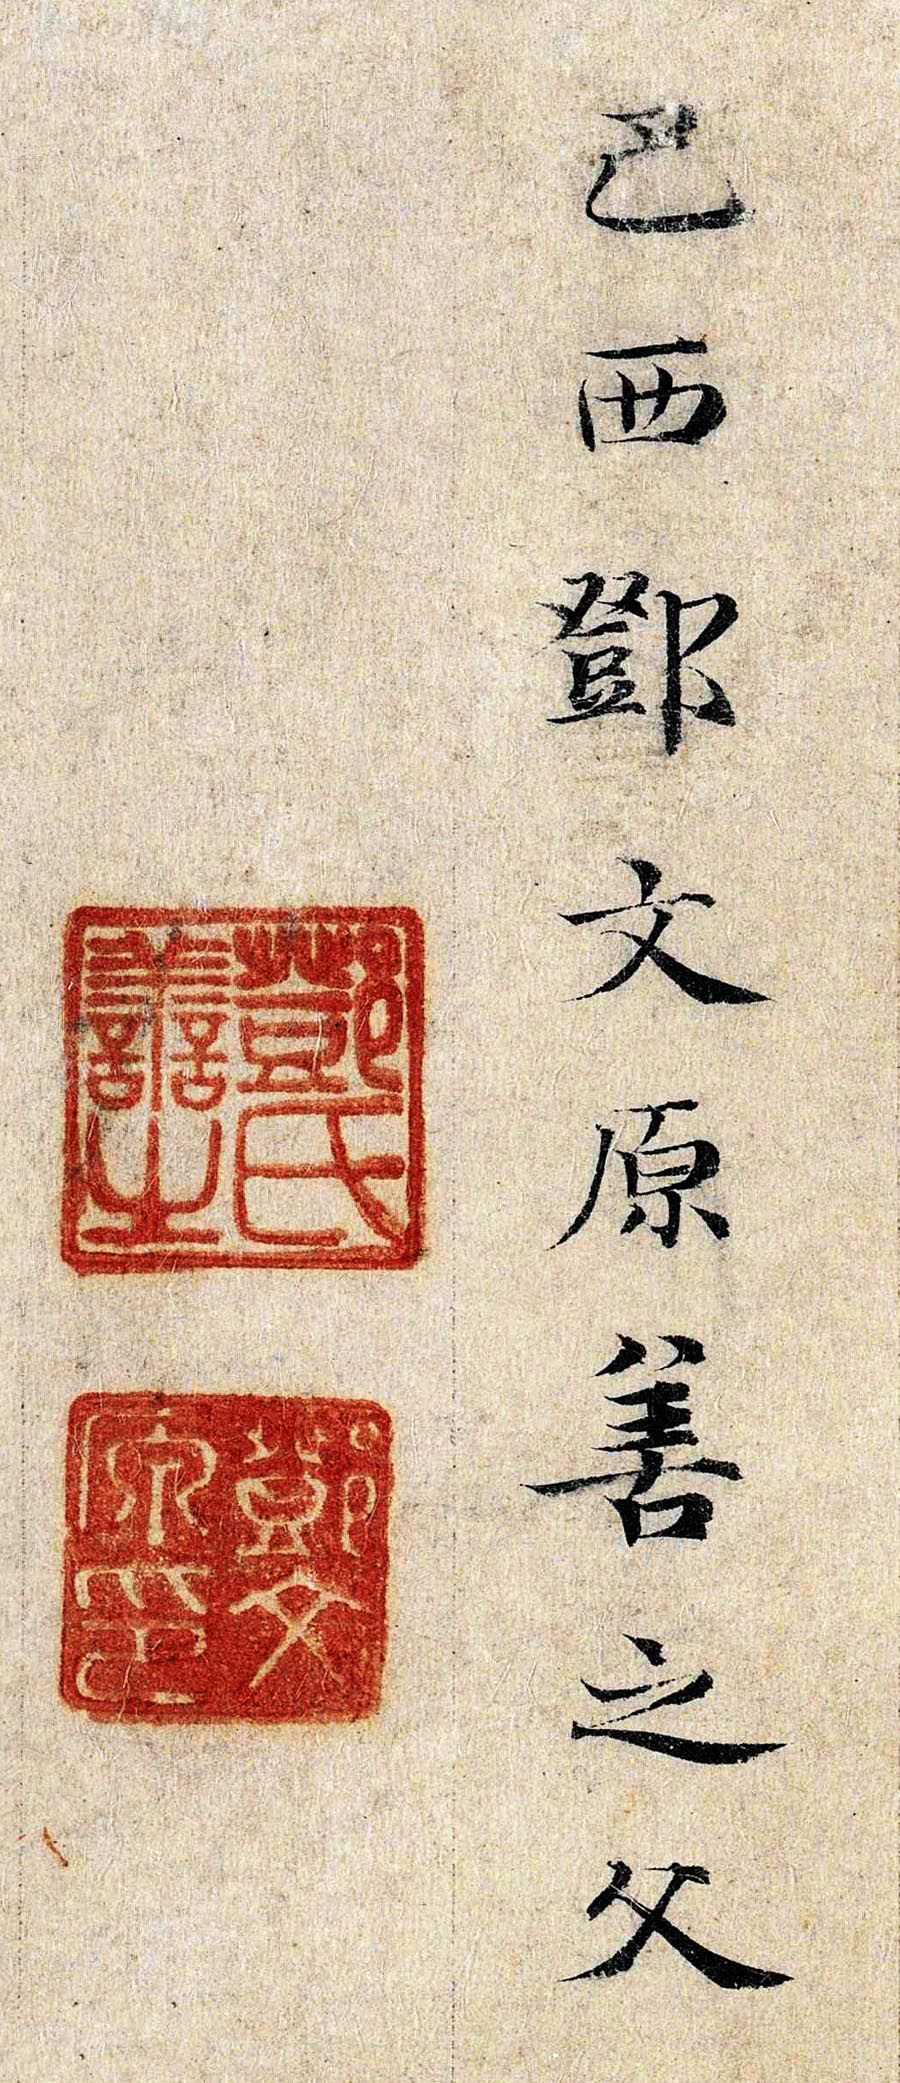 巴西鄧文原善之父
鄧氏
譱之
鄧文
原印